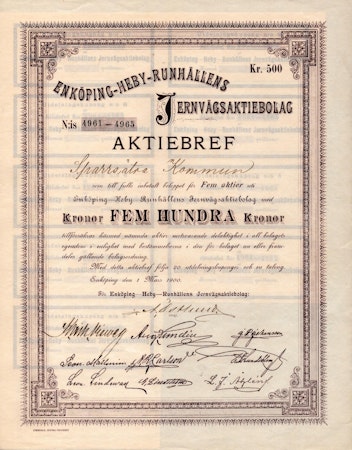 Kr. 500
ENKÖPING-HEBY-RUNHÄLLENS
JERNVÄGSAKTIEBOLAG
N:is 4961-4965
AKTIEBREF
Sparrsätra Kommun
som till fullo inbetalt beloppet för Fem aktier uti
Enköping-Heby-Runhällens Jernvägsaktiebolag med
Kronor FEM HUNDRA Kronor
tillförsäkras härmed nämnda aktier motsvarande delaktighet i all bolagets
egendom i enlighet med bestämmelserna i den för bolaget nu eller framdeles
gällande bolagsordning.
Med detta aktiebref följa 20 utdelningskuponger och en talong.
Enköping den 1 Mars 1900.
För Enköping-Heby-Runhällens Jernvägsaktiebolag: